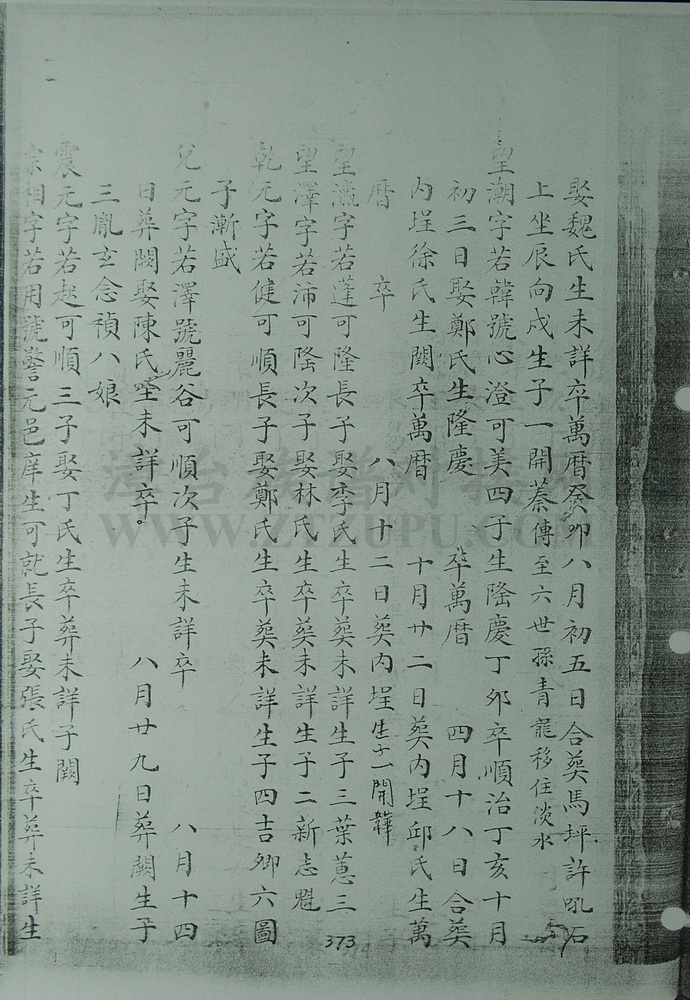 娶魏氏生未詳卒萬曆癸卯八月初五日合葵馬坪許吼石
上坐辰向戌生子一開蓁傳至六世孫青龍移住淡水
望潮字若韓號心澄可美四子生隆慶丁夘卒順治丁亥十月
初三日娶鄭氏生隆慶 卒萬曆 四月十八日合葵
内埕徐氏生闕卒萬曆 十月廿二日葵内埕邱氏生萬
曆 卒 八月十二日葵内埕生子一開韡
望瀛字若蓬可隆長子娶季氏生卒葵未詳生子三葉蕙三
望澤字若沛可隆次子娶林氏生卒葵未詳生子二新志魁
乾元字若健可順長子娶鄭氏生卒葵未詳生子四吉卿六圖
子漸盛
兌元字若澤號麗谷可順次子生未詳卒 八月十四
日葬闕娶陳氏生未詳卒。 八月廿九日葬闕生子
三胤玄念禎八娘
震元字若起可順三子娶丁氏生卒葬未詳子闕
宗相字若用號警元邑庠生可就長子娶張氏生卒葬未詳生
373
漳台族譜对接网
WWW.ZTZUPU.COM